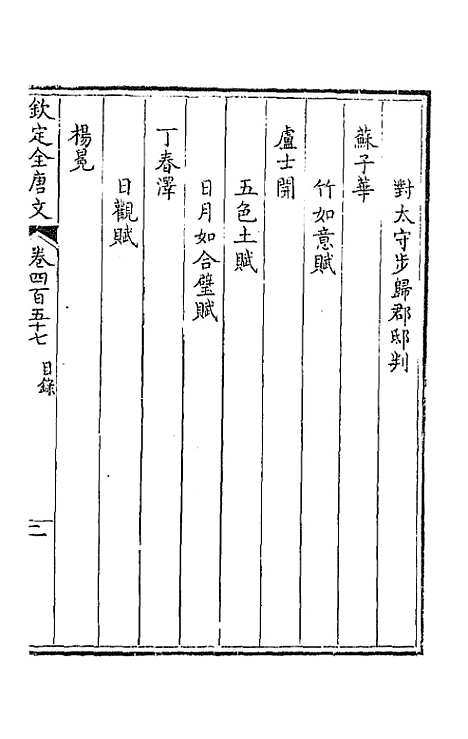 對太守步歸郡邸判
蘇子華
竹如意賦
盧士開
五色土賦
日月如合璧賦
丁春澤
日觀賦
楊冕
欽定全唐文 卷四百五十七 目錄 二